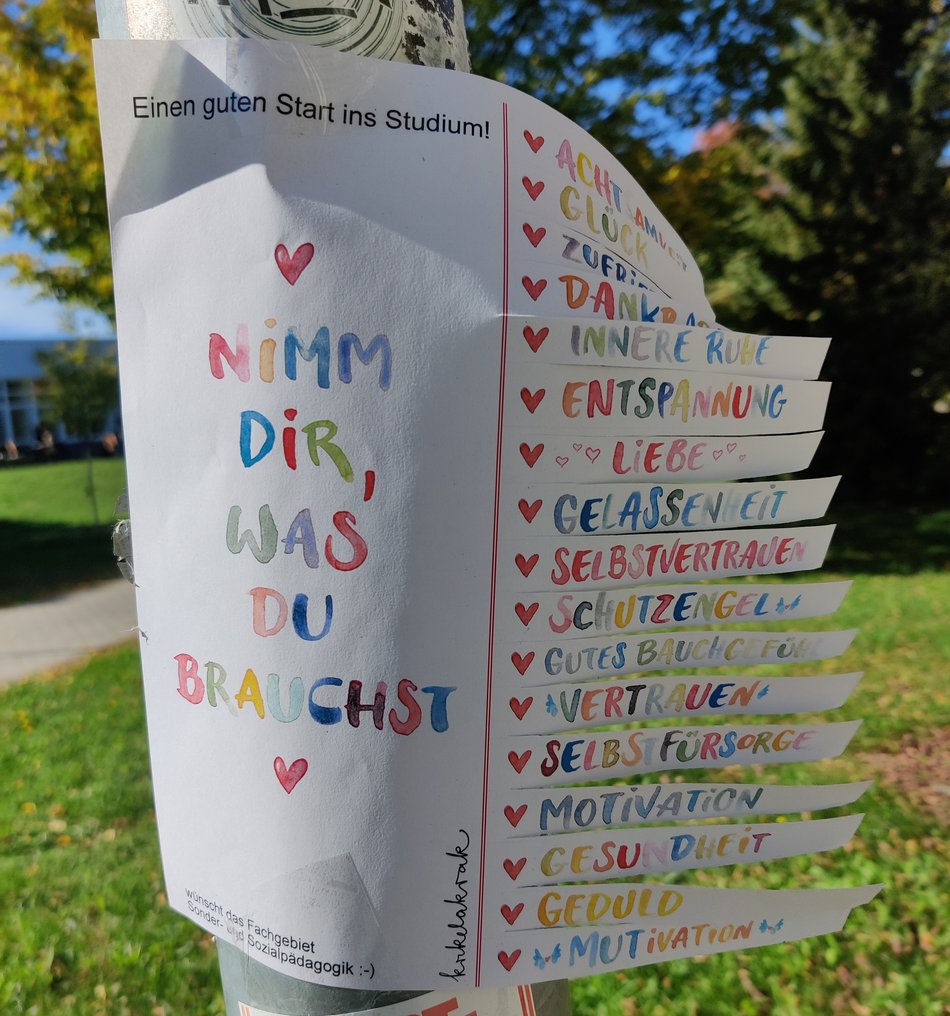 Einen guten Start ins Studium!
NIMM
DIR,
WAS
DU
BRAUCHST
wünscht das Fachgebiet
Sonder- und Sozialpädagogik :-)
krikelakrak
ACHTSAMKEIT
GLÜCK
DANKBAR
INNERE RUHE
ENTSPANNUNG
LIEBE
GELASSENHEIT
SELBSTVERTRAUEN
SCHUTZENGEL
GUTES BAUCHGEFÜHL
VERTRAUEN
SELBSTFÜRSORGE
MOTIVATION
GESUNDHEIT
GEDULD
MUTIVATION